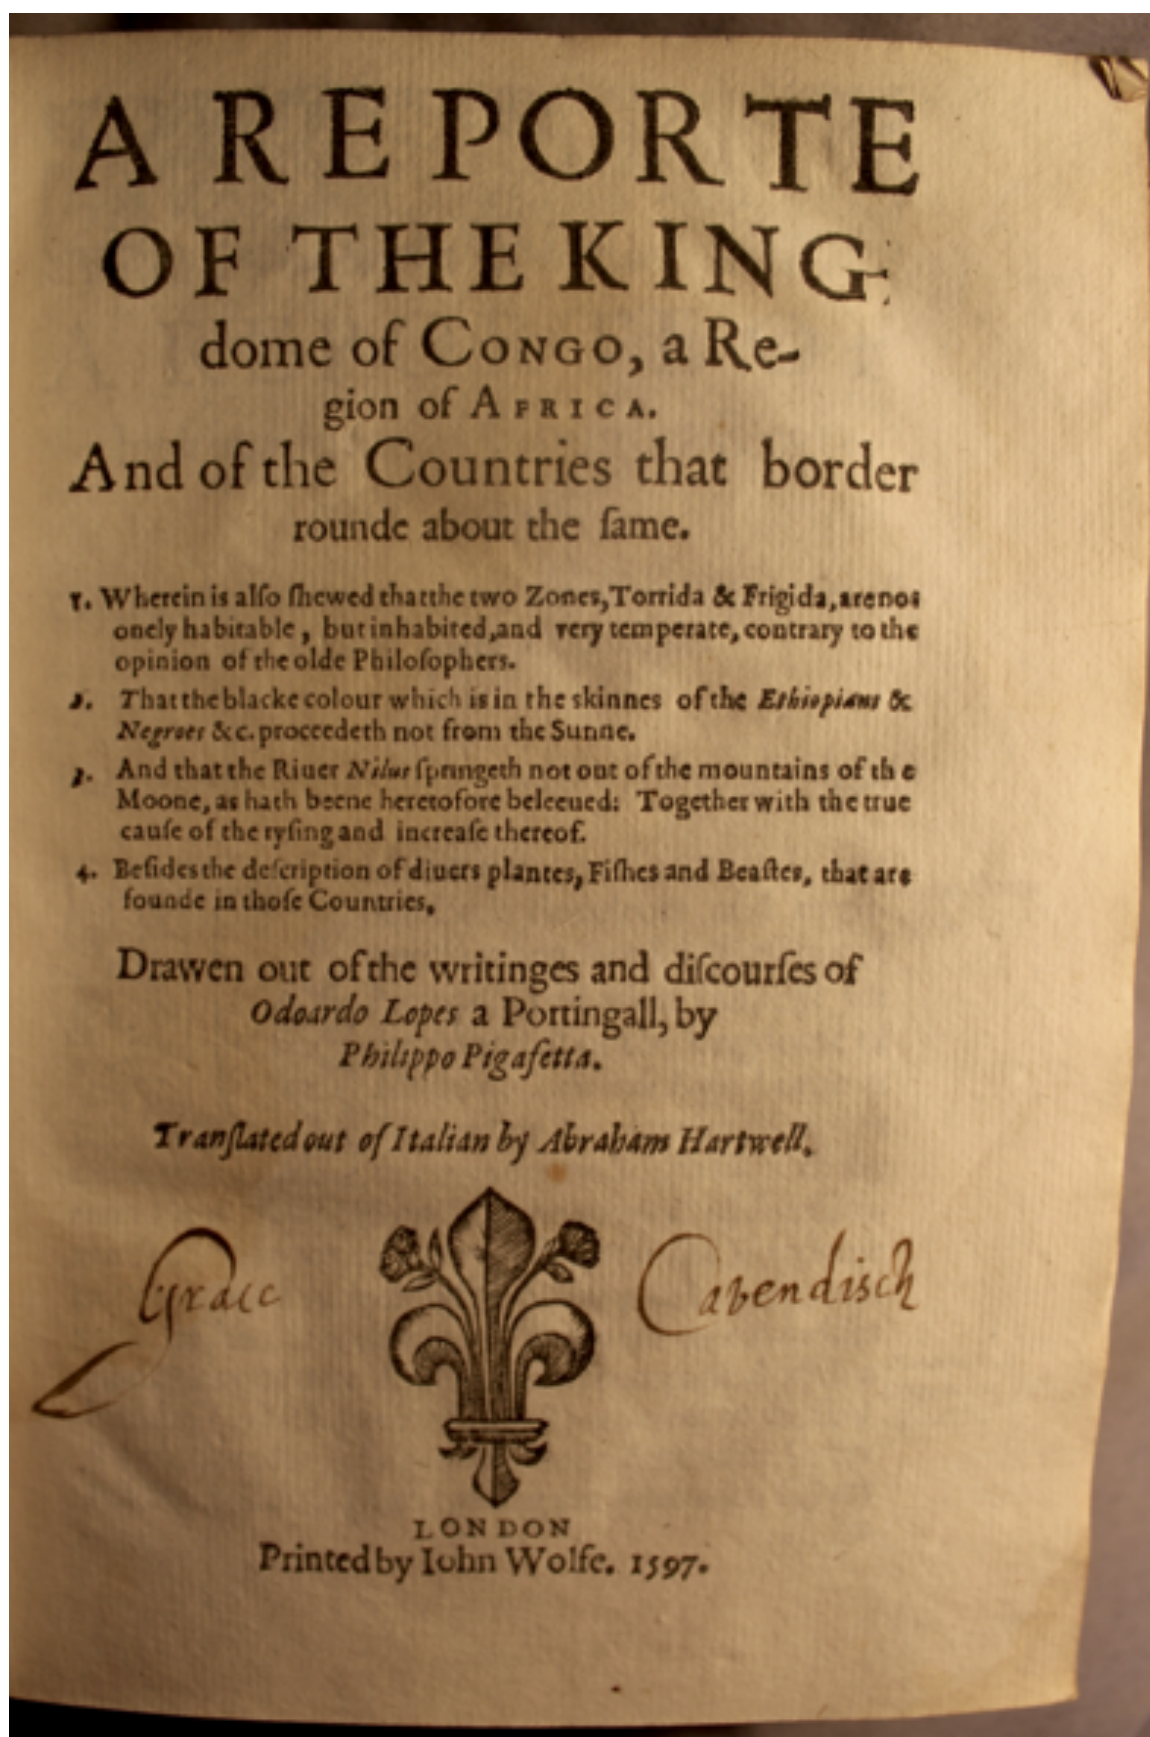 A REPORTE
OF THE KING-
dome of CONGO, a Re-
gion of AFRICA.
And of the Countries that border
rounde about the ſame.
1. Wherein is alſo ſhewed that the two Zones, Torrida & Frigida, are not
onely habitable, but inhabited, and very temperate, contrary to the
opinion of the olde Philoſophers.
2. That the blacke colour which is in the skinnes of the Ethiopians &
Negroes &c. proceedeth not from the Sunne.
3. And that the Riuer Nilus ſpringeth not out of the mountains of the
Moone, as hath beene heretofore beleeued: Together with the true
cauſe of the ryſing and increaſe thereof.
4. Beſides the deſcription of diuers plantes, Fiſhes and Beaſtes, that are
founde in thoſe Countries.
Drawen out of the writinges and diſcourſes of
Odoardo Lopes a Portingall, by
Philippo Pigafetta.
Tranſlated out of Italian by Abraham Hartwell.
Grace Cavendisch
LONDON
Printed by Iohn Wolfe. 1597.